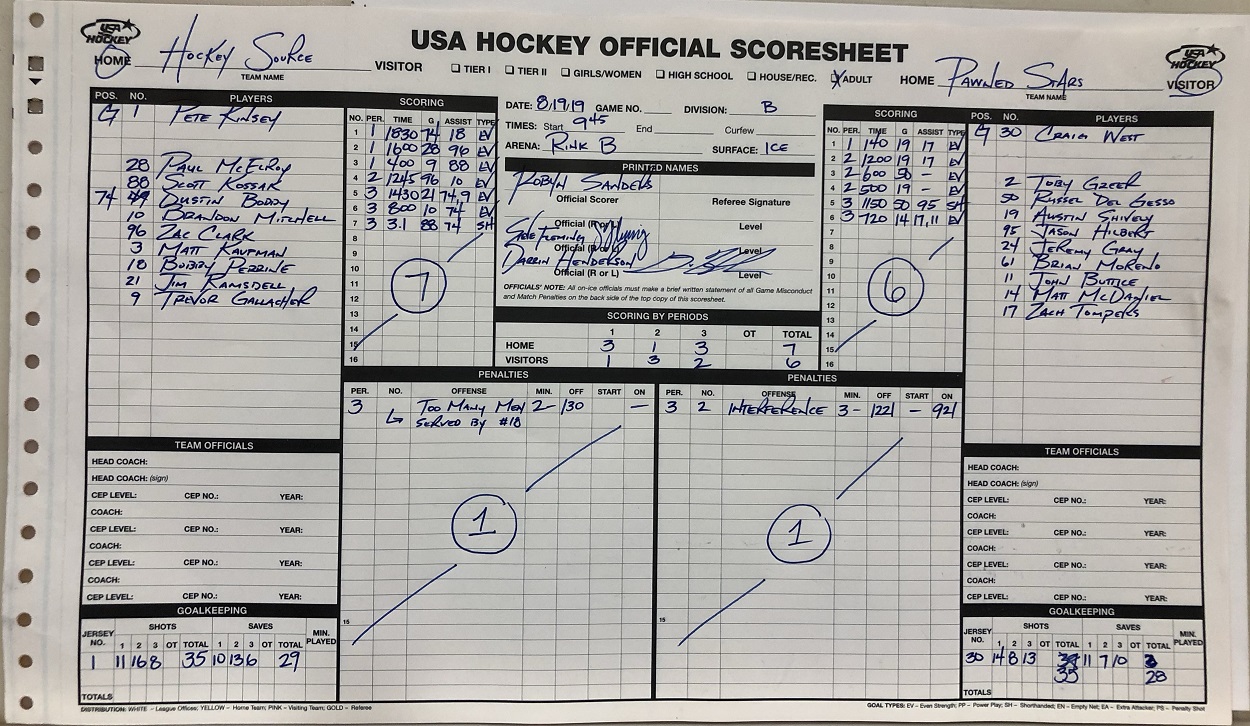 USA HOCKEY OFFICIAL SCORESHEET
USA HOCKEY
HOME Hockey Source VISITOR
TEAM NAME
☐ TIER I ☐ TIER II ☐ GIRLS/WOMEN ☐ HIGH SCHOOL ☐ HOUSE/REC. ☒ ADULT
HOME Pawned Stars VISITOR
TEAM NAME
USA HOCKEY
POS. NO. PLAYERS
G 1 Pete Kinsey
28 Paul McElroy
88 Scott Kossar
74 Dustin Boddy
10 Brandon Mitchell
96 Zac Clark
3 Matt Kaufman
18 Bobby Perrine
21 Jim Ramsdell
9 Trevor Gallagher
SCORING
NO. PER. TIME G ASSIST TYPE
1 1 1830 74 18 EV
2 1 1600 28 96 EV
3 1 400 9 88 EV
4 2 1245 96 10 EV
5 3 1430 21 74,9 EV
6 3 800 10 74 EV
7 3 3.1 88 74 SH
8
9
10
11
12
13
14
15
16
7
DATE: 8/19/19 GAME NO. DIVISION: B
TIMES: Start 945 End Curfew
ARENA: Rink B SURFACE: ICE
PRINTED NAMES
Robyn Sanders
Official Scorer Referee Signature
Official (R or L) Level
Steve Fleming
Official (R or L) Level
Darrin Henderson
Official (R or L) Level
OFFICIALS' NOTE: All on-ice officials must make a brief written statement of all Game Misconduct
and Match Penalties on the back side of the top copy of this scoresheet.
SCORING BY PERIODS
1 2 3 OT TOTAL
HOME 3 1 3 7
VISITORS 1 3 2 6
SCORING
NO. PER. TIME G ASSIST TYPE
1 1 140 19 17 EV
2 2 1200 19 17 EV
3 2 600 50 - EV
4 2 500 19 - EV
5 3 1150 50 95 SH
6 3 720 14 17,11 EV
7
8
9
10
11
12
13
14
15
16
6
POS. NO. PLAYERS
G 30 Craig West
2 Toby Greer
50 Russel Del Gesso
19 Austin Shively
95 Jason Hilbert
24 Jeremy Gray
61 Brian Moreno
11 John Buttice
14 Matt McDaniel
17 Zach Tompers
PENALTIES
PER. NO. OFFENSE MIN. OFF START ON
3 Too Many Men 2- 130 —
↳ Served by #18
15
1
PENALTIES
PER. NO. OFFENSE MIN. OFF START ON
3 2 Interference 3- 1221 - 921
15
1
TEAM OFFICIALS
HEAD COACH:
HEAD COACH: (sign)
CEP LEVEL: CEP NO.: YEAR:
COACH:
CEP LEVEL: CEP NO.: YEAR:
COACH:
CEP LEVEL: CEP NO.: YEAR:
COACH:
CEP LEVEL: CEP NO.: YEAR:
GOALKEEPING
JERSEY NO. SHOTS SAVES MIN. PLAYED
1 2 3 OT TOTAL 1 2 3 OT TOTAL
1 11 16 8 35 10 13 6 29
TOTALS
TEAM OFFICIALS
HEAD COACH:
HEAD COACH: (sign)
CEP LEVEL: CEP NO.: YEAR:
COACH:
CEP LEVEL: CEP NO.: YEAR:
COACH:
CEP LEVEL: CEP NO.: YEAR:
COACH:
CEP LEVEL: CEP NO.: YEAR:
GOALKEEPING
JERSEY NO. SHOTS SAVES MIN. PLAYED
1 2 3 OT TOTAL 1 2 3 OT TOTAL
30 14 8 13 11 7 10
35 28
TOTALS
DISTRIBUTION: WHITE – League Offices; YELLOW – Home Team; PINK – Visiting Team; GOLD – Referee
GOAL TYPES: EV – Even Strength; PP – Power Play; SH – Shorthanded; EN – Empty Net; EA – Extra Attacker; PS – Penalty Shot